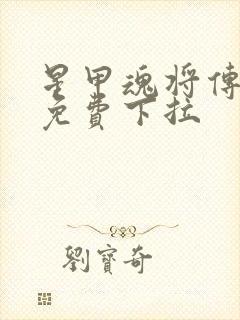 星甲魂将傳
免費下拉
劉寶奇